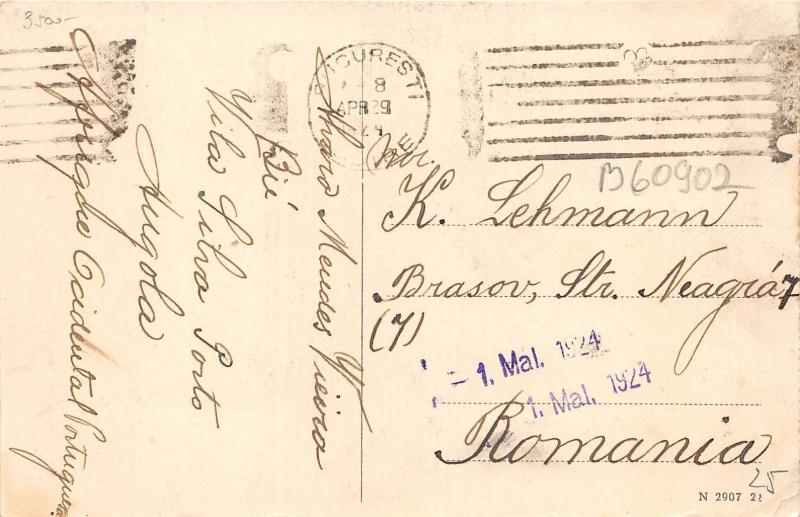 3500-
Alvaro Mendes Vieira
Bié
Vila Silva Porto
Angola
Affrique Ocidental Portuguesa
BUCURESTI
8
APR 29
24
B60902
K. Lehmann
Brasov, Str. Neagră 7
(7)
1. Mai. 1924
1. Mai. 1924
Romania
25
N 2907 2